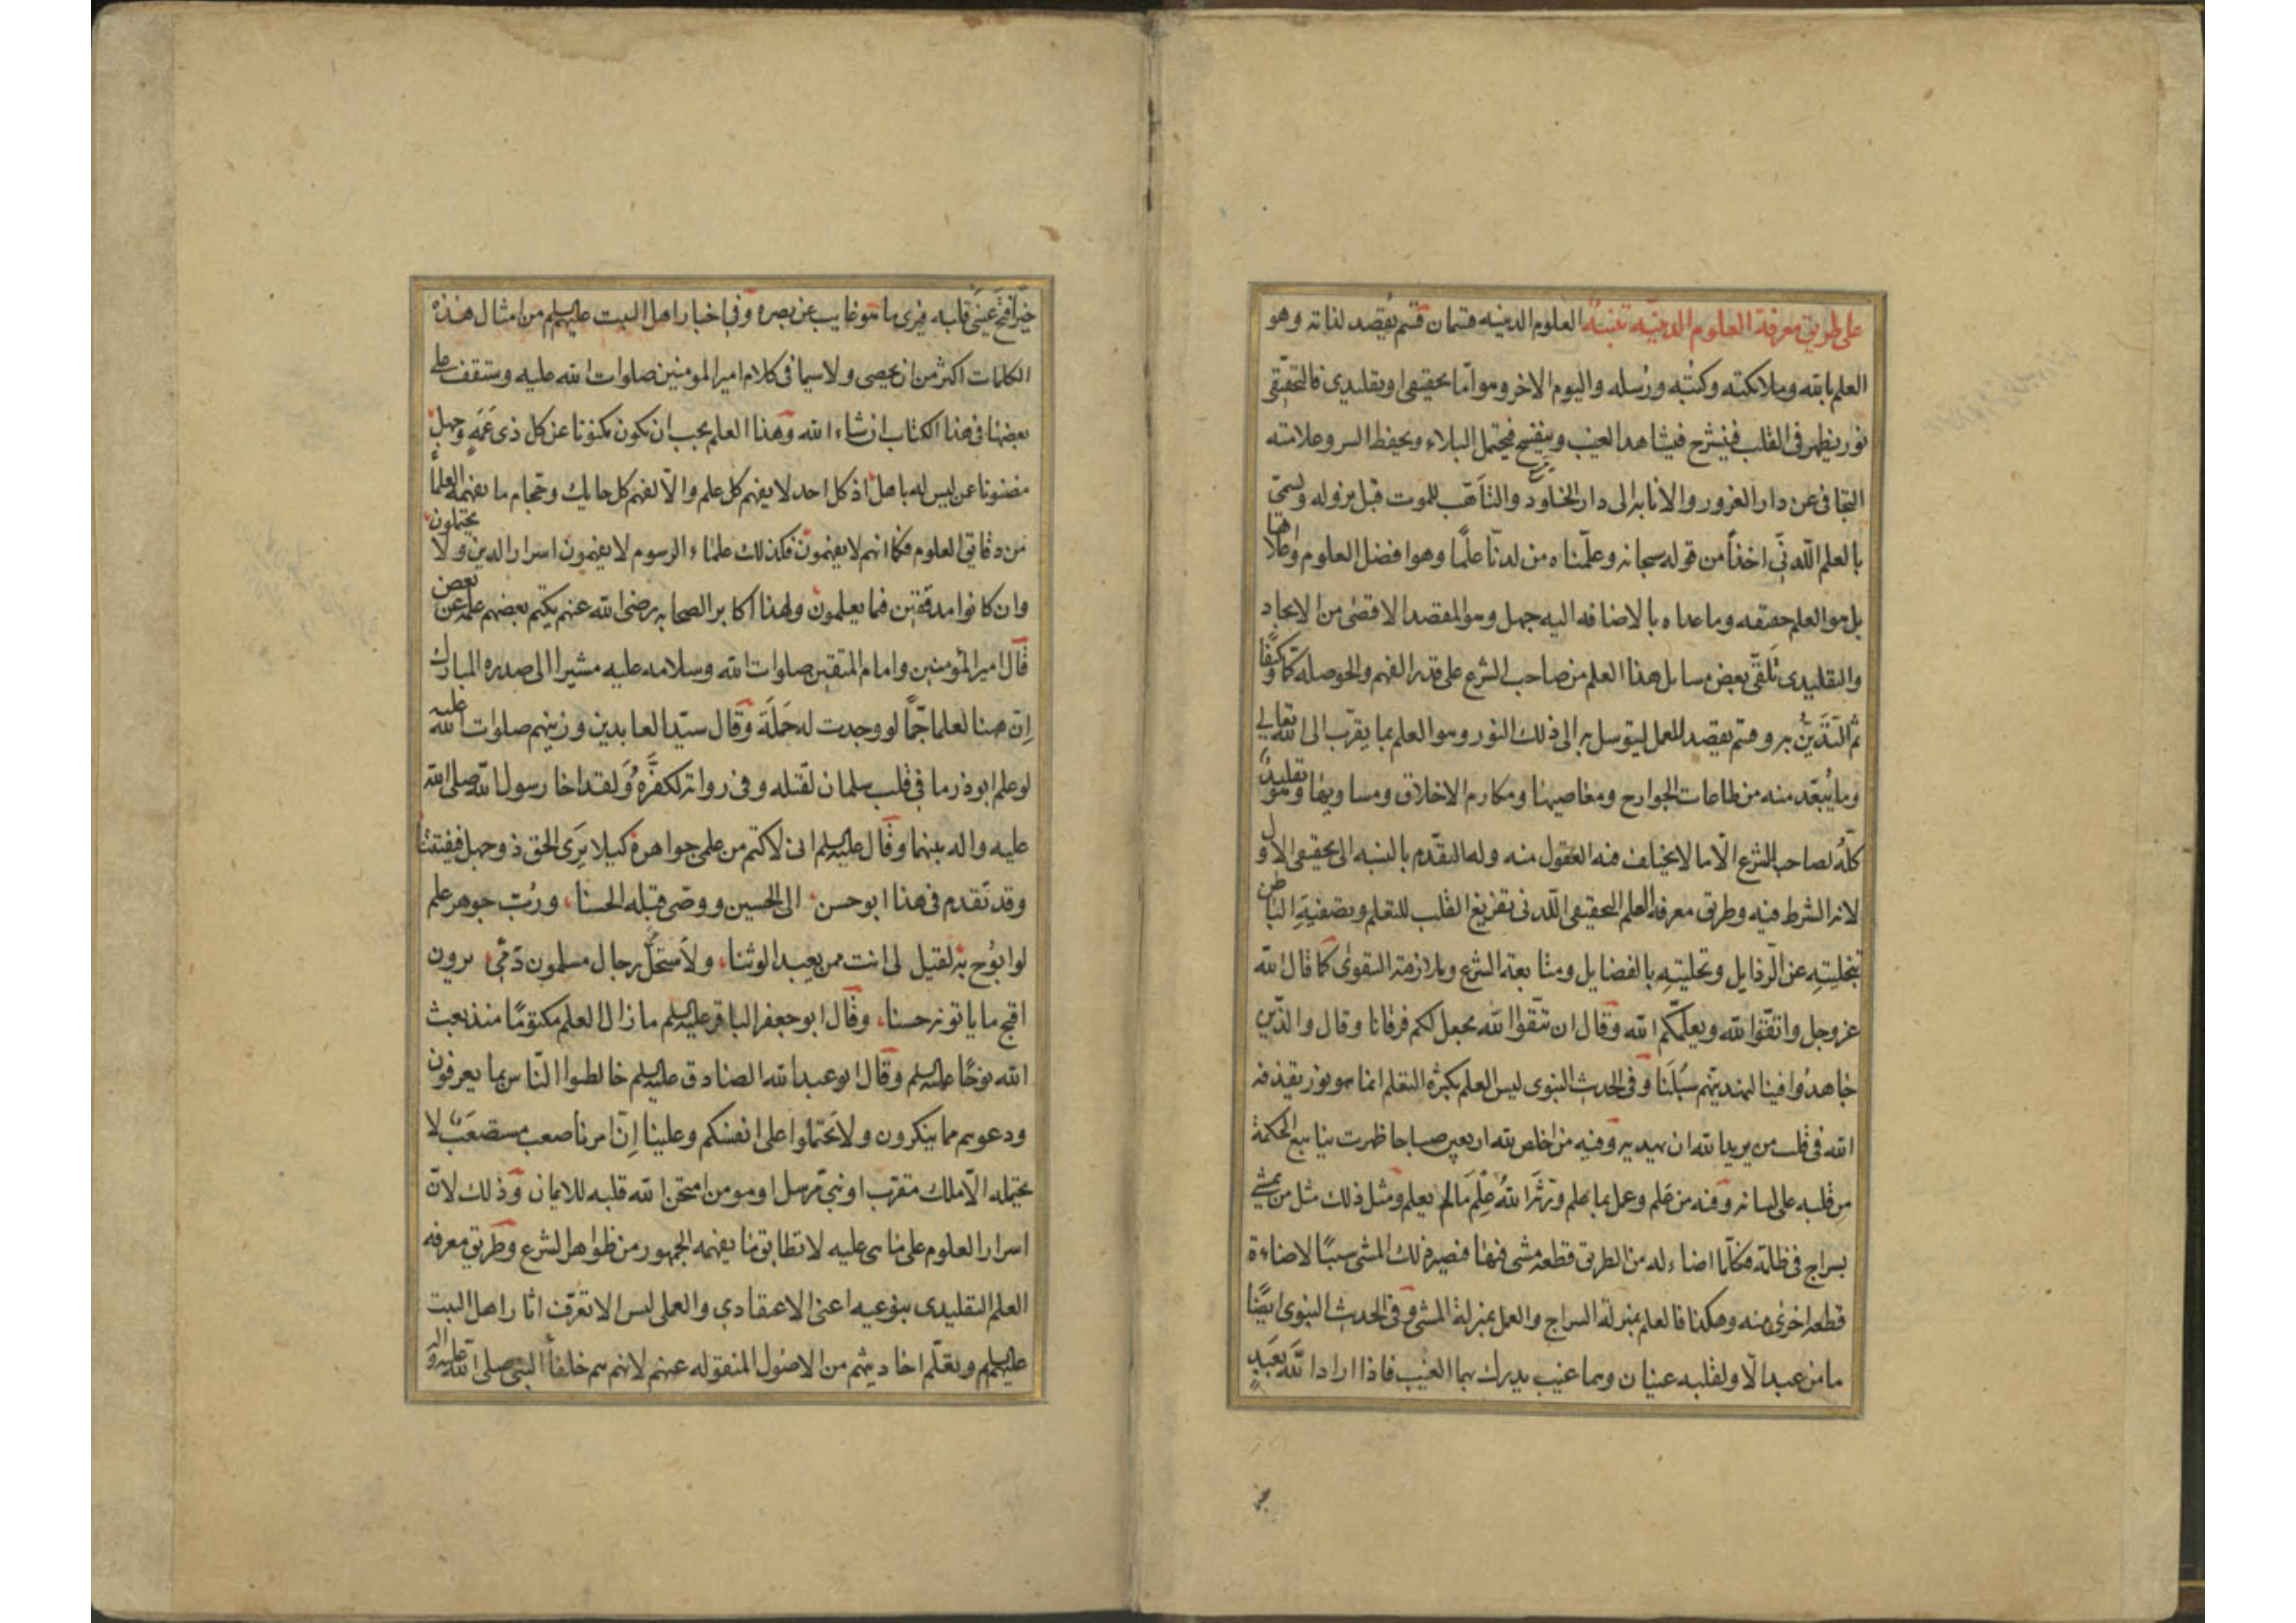 على طريق معرفة العلوم الدينيّه تنبيهٌ العلوم الدينيه قسمان قسم يُقصد لذاته وهو
العلم بالله وملائكته وكتُبه ورُسله واليوم الاخر وهو امّا تحقيقى او تقليدى فالتحقيقى
نور يظهر فى القلب فينشرح فيشاهد الغيب وينفسح فيحتمل البلاء ويحفظ السر وعلامته
التجافى عن دار الغرور والانابه الى دار الخلود والتأهّب للموت قبل نزوله ويسمّى
بالعلم اللدنّى اخذاً من قوله سبحانه وعلّمناه من لدنّا علمًا وهو افضل العلوم واعلاها
بل هو العلم حقيقه وما عداه بالاضافه اليه جهل وهو المقصد الاقصى من الايجاد
والتقليدى تلقّى بعض مسايل هذا العلم من صاحب الشرع على قدر الفهم والحوصله كمّا وكيفًا
ثم التديّن به وقسم يقصد للعمل ليتوسل به الى ذلك النور وهو العلم بما يقرّب الى الله تعالى
وما يُبعّد منه من طاعات الجوارح ومعاصيها ومكارم الاخلاق ومساويها وهو تقليدىّ
كلّه لصاحب الشرع الّا ما لا يختلف فيه العقول منه وله التقدّم بالنسبه الى تحقيقى الاول
لانه الشرط فيه وطريق معرفة العلم التحقيقى اللّدنى تفريغ القلب للتعلم وتصفيةِ الباطن
بتخليتِه عن الرّذايل وتحليتِه بالفضايل ومتابعة الشرع وملازمة التقوى كما قال الله
عز وجل واتقّوا الله ويعلّمكم الله وقال ان تتّقوا الله يجعل لكم فرقانا وقال والّذين
جاهدُوا فينا لنهدينّهم سبُلَنا وفى الحديث النبوى ليس العلم بكثرة التعلم انما هو نور يقذفه
الله فى قلب من يريد الله ان يهديه وفيه من اخلص لله اربعين صباحا ظهرت ينابيع الحكمة
من قلبه على لسانه وفيه من عَلم وعمل بما علم ورّثه اللهُ عِلْمَ مَا لم يعلم ومثل ذلك مثل من يمشى
بسراج فى ظلمة فكلّما اضاء له من الطريق قطعه مشى فيها فيصير ذلك المشى سببًا لاضاءة
قطعه اخرى منه وهكذا فالعلم بمنزلة السراج والعمل بمنزلة المشى وفى الحديث النبوى ايضًا
ما من عبد الّا ولقلبه عينان وهما غيب يدرك بهما الغيب فاذا اراد اللهُ بعَبدٍ
خيرًا فتح عينَى قلبه فيرى ما هو غايب عن بصره وفى اخبار اهل البيت عليهم السلم من امثال هذه
الكلمات اكثر من ان يحصى ولا سيما فى كلام امير المومنين صلوات الله عليه وستقف على
بعضها فى هذا الكتاب ان شاء الله وهذا العلم يجب ان يكون مكنونا عن كل ذى عَمَهٍ وجهل
مضنونا عن ليس له باهل اذ كل احد لا يفهم كل علم والّا لفهم كل حايك وحجام ما يفهمه العلماء
من دقايق العلوم فكما انهم لا يفهمون فكذلك علماء الرسوم لا يفهمون اسرار الدين ولا يحتملون
وان كانوا مدققين فيما يعلمون ولهذا اكابر الصحابه رضى الله عنهم يكتم بعضهم علمه عن بعض
قال امير المؤمنين وامام المتقين صلوات الله وسلامه عليه مشيرا الى صدره المبارك
اِنّ ههنا لعلما جّمًا لو وجدت له حَمَلَة وقال سيّد العابدين وزينهم صلوات الله عليه
لو علم ابوذر ما فى قلب سلمان لقتله وفى روايه لكفَّرَهُ ولقد اخا رسول الله صلى الله
عليه واله بينهما وقال عليه السلم انى لاكتم من علمى جواهره كيلا يَرَى الحق ذو جهل فيفتتنا
وقد تقدم فى هذا ابو حسن الى الحسين ووصّى قبله الحسنا، ورُبّ جوهر علم
لو ابُوح به لقيل لى انت ممن يعبد الوثنا، ولاستَحلّ رجال مسلمون دَمِى يرون
اقبح ما ياتونه حسنا، وقال ابو جعفر الباقر عليه السلم ما زال العلم مكتومًا منذ بعث
الله نوحًا عليه السلم وقال ابو عبد الله الصادق عليه السلم خالطوا النّاس بما يعرفون
ودعوهم مما ينكرون ولا تَحملوا على انفسكم وعلينا اِنّ امرنا صعب مستصعَبٌ لا
يحتمله الّا ملك مقرّب او نبىّ مرسل او مومن امتحن الله قلبه للايمان وذلك لانّ
اسرار العلوم على ما هى عليه لا تطابق ما يفهمه الجمهور من ظواهر الشرع وطريق معرفه
العلم التقليدى بنوعيه اعنى الاعتقادى والعملى ليس الا تعرّف اثار اهل البيت
عليهم السلم وتعلّم احاديثهم من الاصُول المنقوله عنهم لانهم هم خلفاءُ النبى صلى الله عليه واله